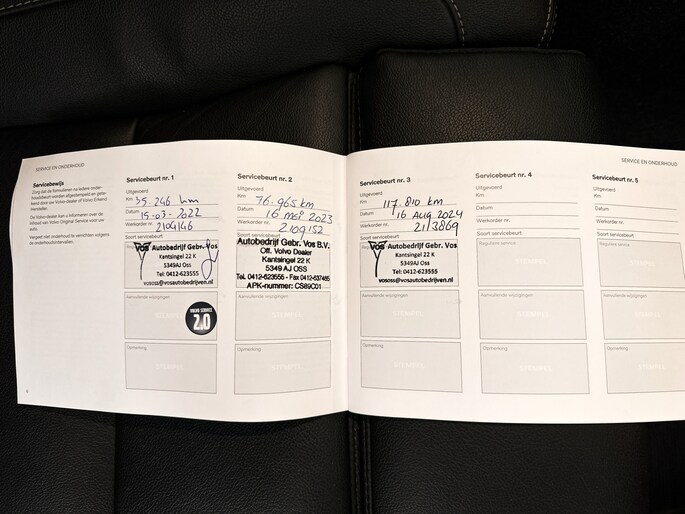 SERVICE EN ONDERHOUD
Servicebewijs
Zorg dat de formulieren na iedere onder-
houdsbeurt worden afgestempeld en gete-
kend door uw Volvo-dealer of Volvo Erkend
Hersteller.
De Volvo-dealer kan u informeren over de
inhoud van Volvo Original Service voor uw
auto.
Vergeet niet onderhoud te verrichten volgens
de onderhoudsintervallen.
Servicebeurt nr. 1
Uitgevoerd:
Km 35.246 km
Datum 15-03-2022
Werkorder nr. 2104146
Soort servicebeurt
VOS Autobedrijf Gebr. Vos
Kantsingel 22 K
5349AJ Oss
Tel: 0412-623555
vososs@vosautobedrijven.nl
Aanvullende wijzigingen
STEMPEL
VOLVO SERVICE
2.0
Opmerking
STEMPEL
Servicebeurt nr. 2
Uitgevoerd:
Km 76.965 km
Datum 16 mei 2023
Werkorder nr. 2109152
Autobedrijf Gebr. Vos B.V.
Off. Volvo Dealer
Kantsingel 22 K
5349 AJ OSS
Tel. 0412-623555 - Fax 0412-637465
APK-nummer: CS89C01
Aanvullende wijzigingen
STEMPEL
Opmerking
STEMPEL
SERVICE EN ONDERHOUD
Servicebeurt nr. 3
Uitgevoerd:
Km 117.810 km
Datum 16 Aug 2024
Werkorder nr. 2113869
Soort servicebeurt
VOS Autobedrijf Gebr. Vos
Kantsingel 22 K
5349AJ Oss
Tel: 0412-623555
vososs@vosautobedrijven.nl
Aanvullende wijzigingen
STEMPEL
Opmerking
STEMPEL
Servicebeurt nr. 4
Uitgevoerd:
Km
Datum
Werkorder nr.
Soort servicebeurt
Reguliere service
STEMPEL
Aanvullende wijzigingen
STEMPEL
Opmerking
STEMPEL
Servicebeurt nr. 5
Uitgevoerd:
Km
Datum
Werkorder nr.
Soort servicebeurt
Reguliere service
STEMPEL
Aanvullende wijzigingen
STEMPEL
Opmerking
STEMPEL